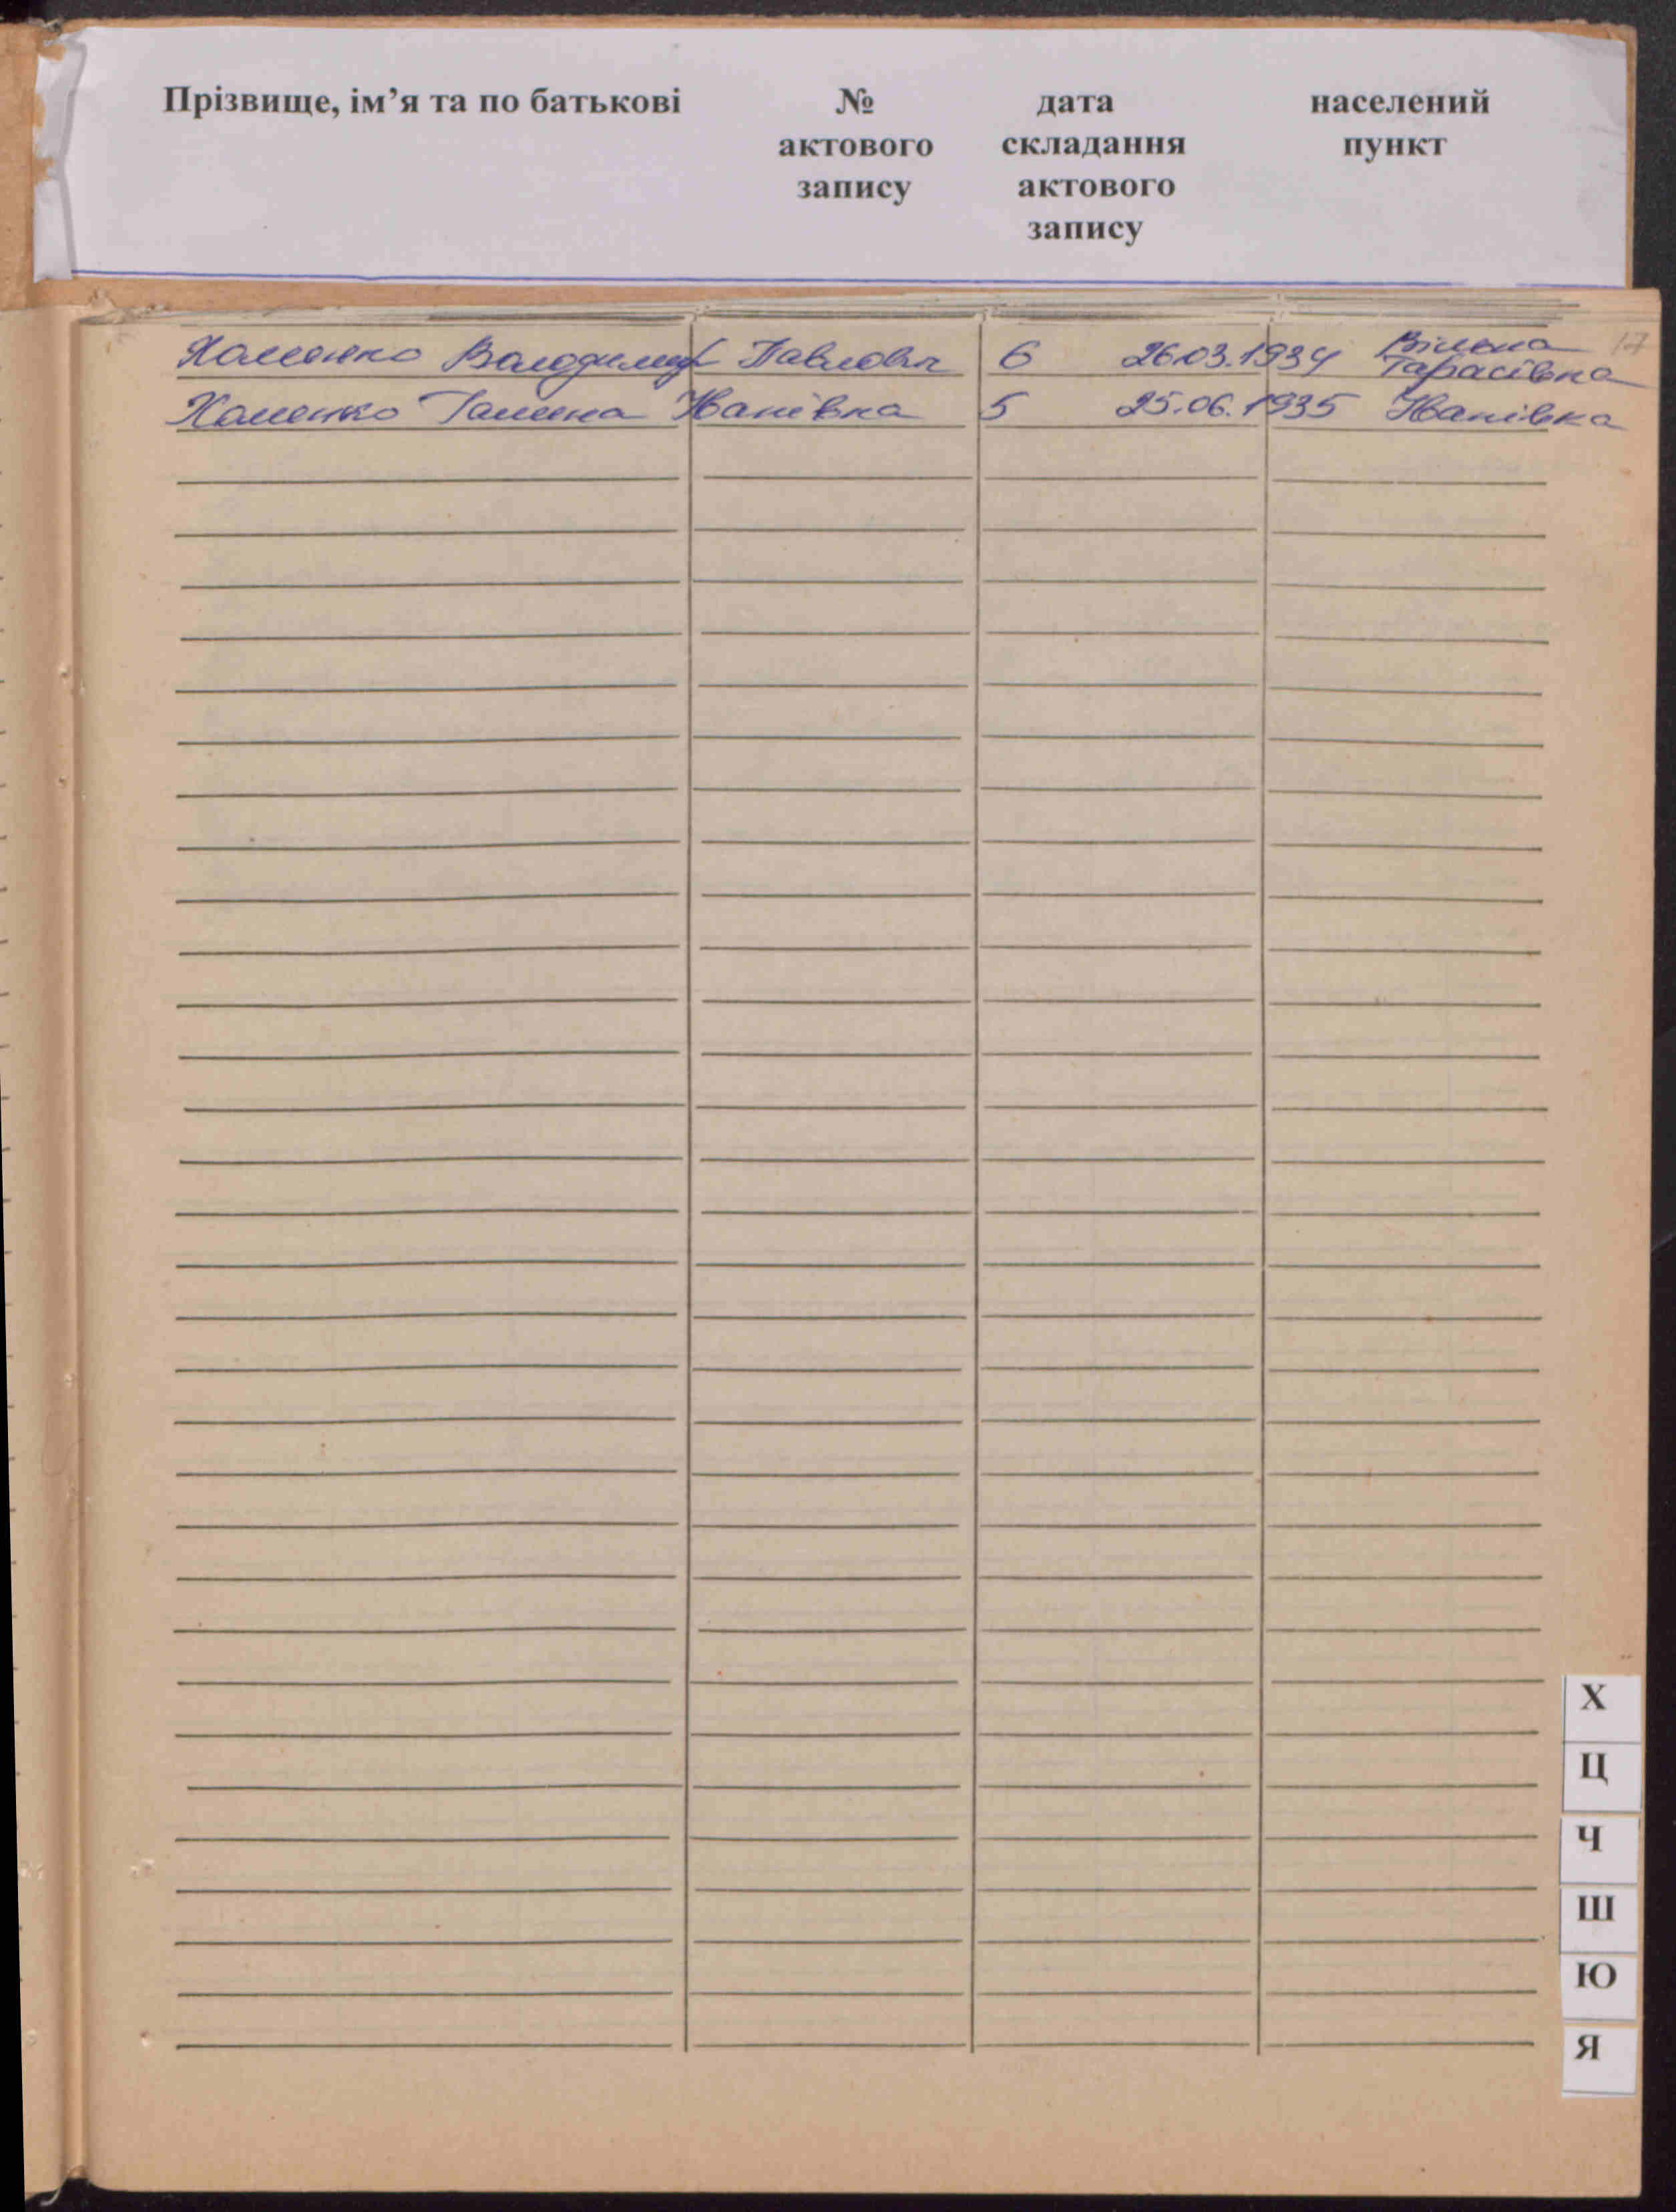 Прізвище, ім’я та по батькові № дата населений
актового складання пункт
запису актового
запису
17
Хоменко Володимир Павлович 6 26.03.1934 Вільна Тарасівка
Хоменко Галина Іванівна 5 25.06.1935 Іванівка
Х
Ц
Ч
Ш
Ю
Я